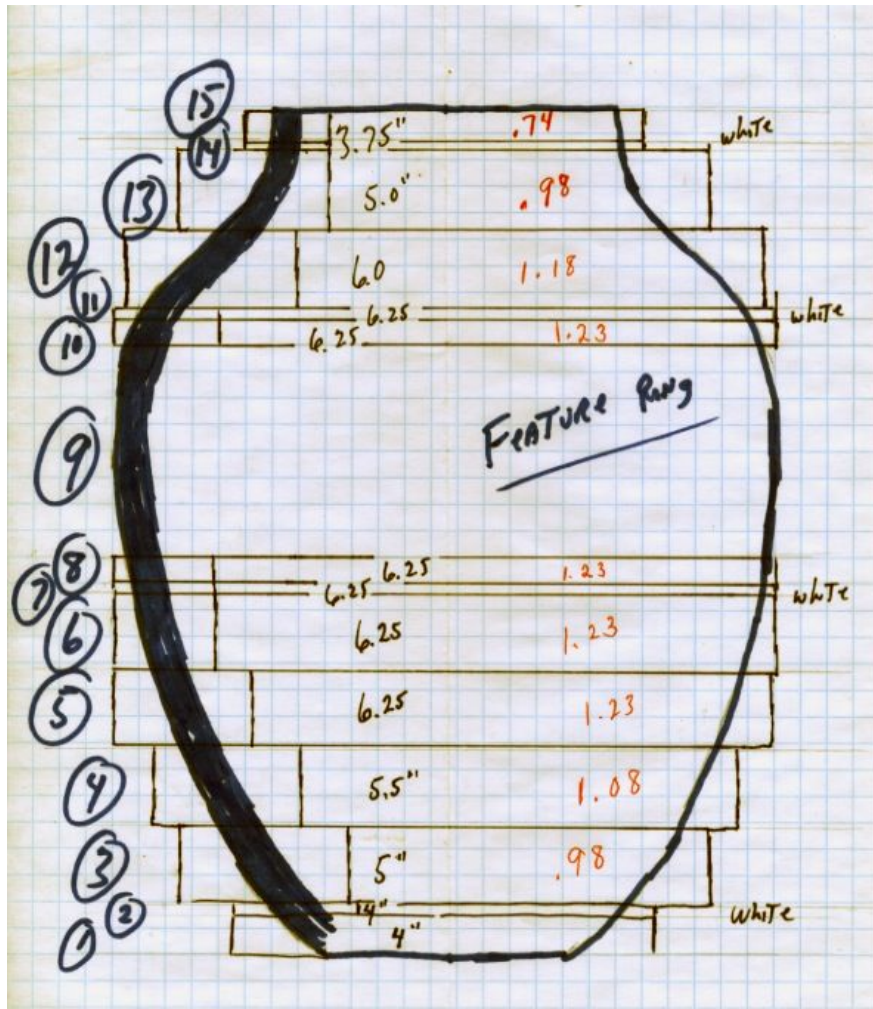 15
3.75" .74 white
14
13 5.0" .98
12 6.0 1.18
11 6.25 white
10 6.25 1.23
9 Feature Ring
8 6.25 1.23
7 6.25 white
6 6.25 1.23
5 6.25 1.23
4 5.5" 1.08
3 5" .98
2 4" white
1 4"